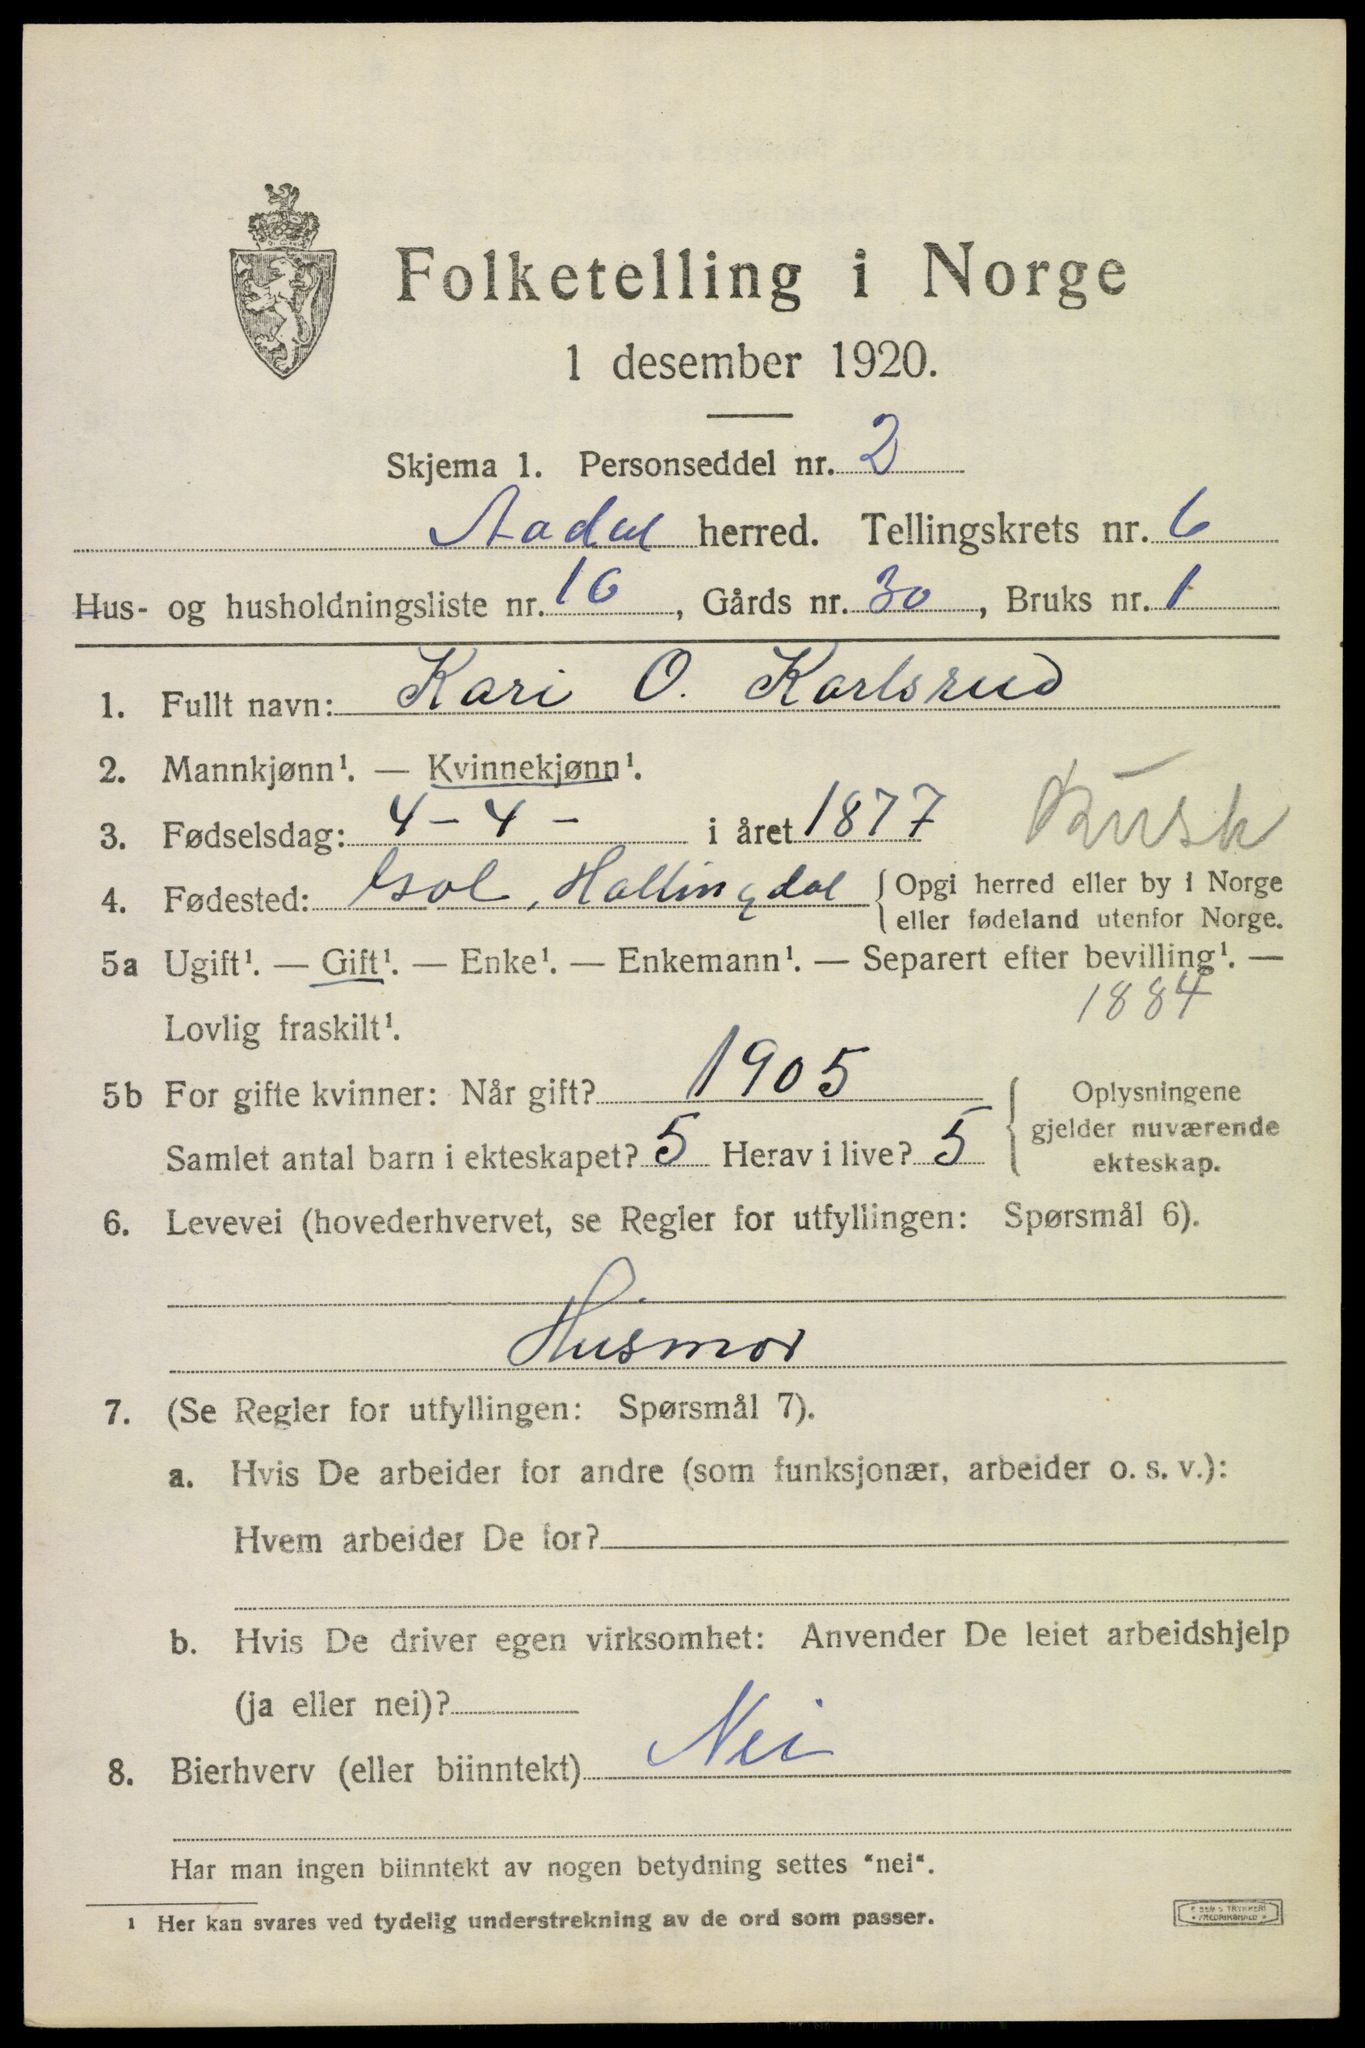 Folketelling i Norge
1 desember 1920.
Skjema 1. Personseddel nr. 2
Aadal herred. Tellingskrets nr. 6
Hus- og husholdningsliste nr. 16, Gårds nr. 30, Bruks nr. 1
1. Fullt navn: Kari O. Karlsrud
2. Mannkjønn¹. — Kvinnekjønn¹.
3. Fødselsdag: 4 – 4 – i året 1877
Busk
4. Fødested: Gol, Hallingdal {Opgi herred eller by i Norge
eller fødeland utenfor Norge.
5a Ugift¹. — Gift¹. — Enke¹. — Enkemann¹. — Separert efter bevilling¹. —
1884
Lovlig fraskilt¹.
5b For gifte kvinner: Når gift? 1905
Samlet antal barn i ekteskapet? 5 Herav i live? 5
Oplysningene
gjelder nuværende
ekteskap.
6. Levevei (hovederhvervet, se Regler for utfyllingen: Spørsmål 6).
Husmor
7. (Se Regler for utfyllingen: Spørsmål 7).
a. Hvis De arbeider for andre (som funksjonær, arbeider o. s. v.):
Hvem arbeider De for?
b. Hvis De driver egen virksomhet: Anvender De leiet arbeidshjelp
(ja eller nei)?
8. Bierhverv (eller biinntekt) Nei
Har man ingen biinntekt av nogen betydning settes "nei".
¹ Her kan svares ved tydelig understrekning av de ord som passer.